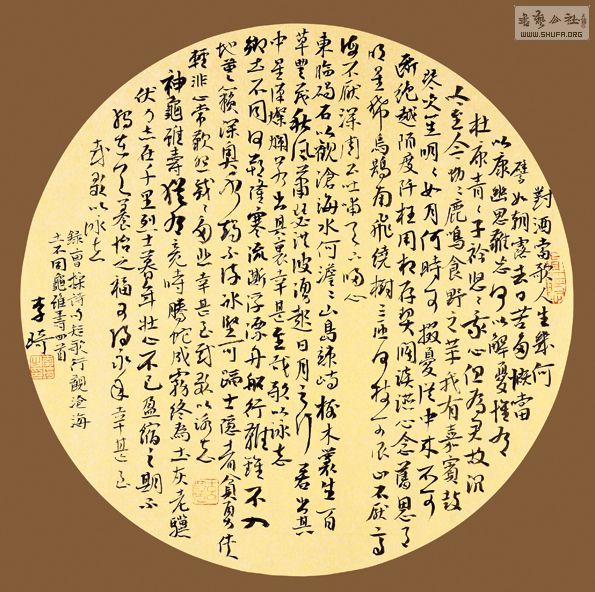 對酒當歌人生幾何
譬如朝露去日苦多慨當
以康幽思難忘何以解憂惟有
杜康青青子衿悠悠我心但為君故沉
吟至今呦呦鹿鳴食野之苹我有嘉賓鼓
瑟吹笙明明如月何時可掇憂從中來不可
斷絕越陌度阡枉用相存契闊談讌心念舊恩月
明星稀烏鵲南飛繞樹三匝何枝可依山不厭高
海不厭深周公吐哺天下歸心
東臨碣石以觀滄海水何澹澹山島竦峙樹木叢生百
草豐茂秋風蕭瑟洪波湧起日月之行若出其
中星漢燦爛若出其裏幸甚至哉歌以詠志
鄉土不同河朔隆寒流澌浮漂舟船行難錐不入
地蘴藾深奧水竭不流冰堅可蹈士隱者貧勇俠
輕非心常歎怨戚戚多悲幸甚至哉歌以詠志
神龜雖壽猶有竟時騰蛇成霧終為土灰老驥
伏櫪志在千里烈士暮年壯心不已盈縮之期不
獨在天養怡之福可得永年幸甚至
哉歌以詠志
錄曹操詩句短歌行觀滄海
土不同龜雖壽四首
李
書藝公社
WWW.SHUFA.ORG